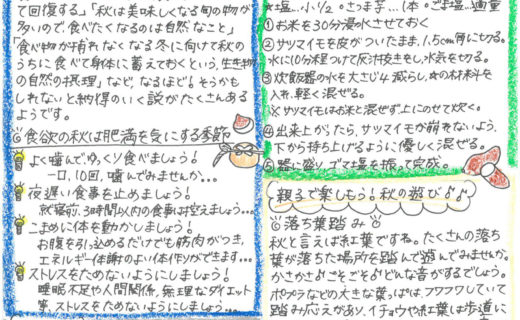 て回復する。」「秋は美味しくなる旬の物が
多いので、食べたくなるのは自然なこと」
「食べ物が採れなくなる冬に向けて秋の
うちに食べて身体に蓄えておくという、生き物
の自然の摂理」など、なるほど！そうかも
しれないと納得のいく説がたくさんある
ようです。
◎食欲の秋は肥満を気にする季節
よく噛んでゆっくり食べましょう！
一口、10回、噛んでみませんか...
夜遅い食事を止めましょう！
就寝前、3時間以内の食事は控えましょう...
こまめに体を動かしましょう！
お腹を引っ込めるだけでも筋肉がつき、
エネルギー代謝のよい体作りができます...
ストレスをためないようにしましょう！
睡眠不足や人間関係、無理なダイエット
等、ストレスをためないようにしましょう...
★塩...小1/2 さつま芋...1本 ごま塩...適量
①お米を30分浸水させておく
②サツマイモを皮がついたまま、1.5cm角に切る。
水に10分程つけて灰汁抜きをし、水気を切る。
③炊飯器の水を大さじ4減らし、★の材料を
入れ、軽く混ぜる。
※サツマイモはお米と混ぜず上にのせて炊く。
④出来上がったら、サツマイモが崩れないよう、
下から持ち上げるように優しく混ぜる。
⑤器に盛り、ゴマ塩を振って完成。
親子で楽しもう！秋の遊び♪♪
◎落ち葉踏み◎
秋と言えば紅葉ですね。たくさんの落ち
葉が落ちた場所を踏んで遊んでみませんか。
かさかさ？ごそごそ？どんな音がするでしょう。
ポプラなどの大きな葉っぱは、フワフワしていて
踏み応えがあり、イチョウや紅葉は歩道に